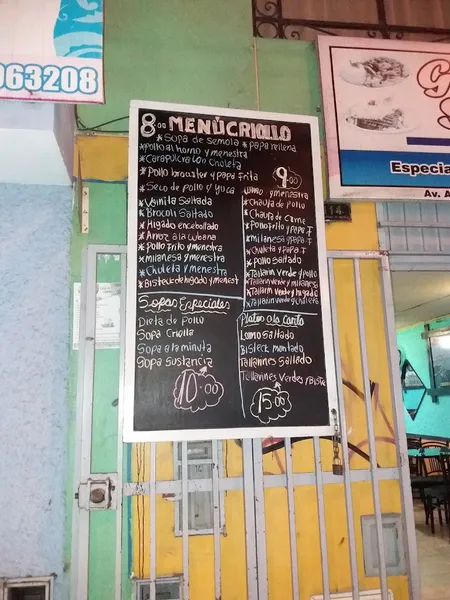 063208
8.00 MENÚ CRIOLLO
*Sopa de semola *papa rellena
*Pollo al horno y menestra
*Carapulcra con Choleta
*Pollo broaster y papa frita
*Seco de pollo y yuca
*Vainita Saltada
*Brocoli Saltado
*Higado encebollado
*Arroz a la cubana
*Pollo frito y menestra
*milanesa y menestra
*Chuleta y menestra
*Bisteck de higado y menest
9.00
y menestra
*Chaufa de pollo
*Chaufa de Carne
*Pollo frito y papa F
*milanesa y papa F
*Chuleta y papa F
*Pollo Saltado
*Tallarin Verde y pollo
*Tallarin verde y milanesa
*Tallarin Verde y higado
*Tallarin verde y chuleta
Sopas Especiales
Dieta de Pollo
Sopa Criolla
Sopa a la minuta
Sopa Sustancia
10.00
Platos a la Carta
Lomo Saltado
Bisteck montado
Tallarines Saltado
Tallarines Verdes y Biste
15.00
Especia
Av. A
14